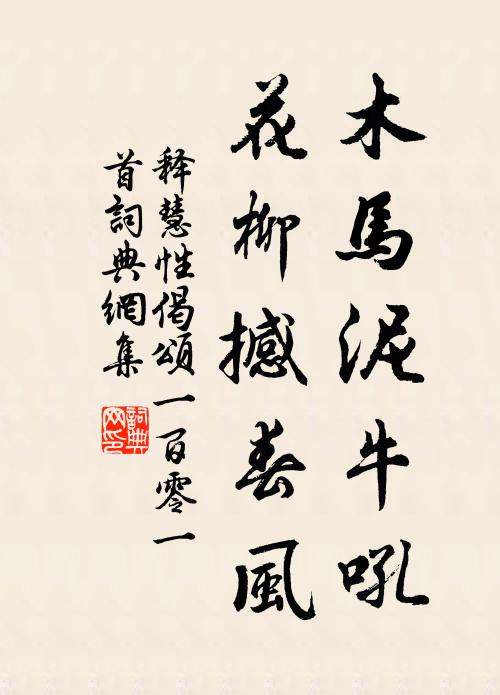 木馬泥牛吼
花柳撼春風
释慧性偈頌一百零一
首詞典網集
詞典网印